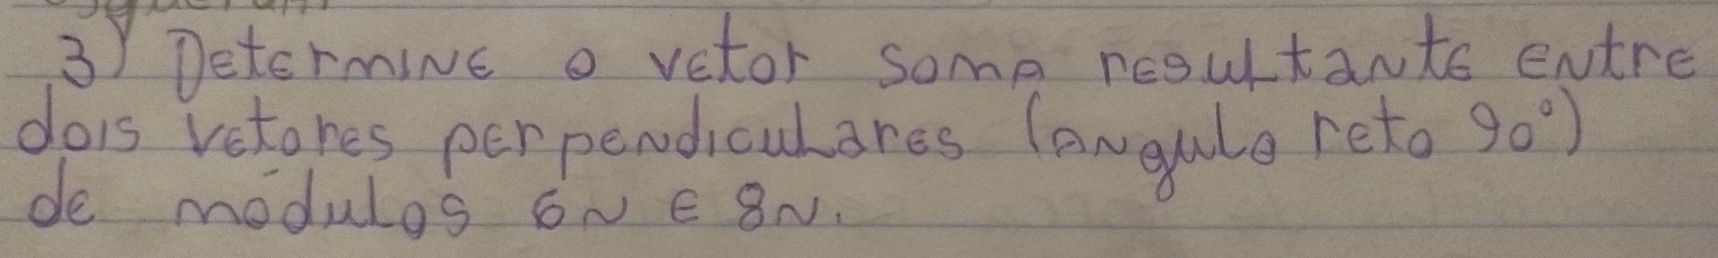 3) Determine o vetor soma resultante entre
dois vetores perpendiculares (angulo reto 90°)
de módulos 6N e 8N.